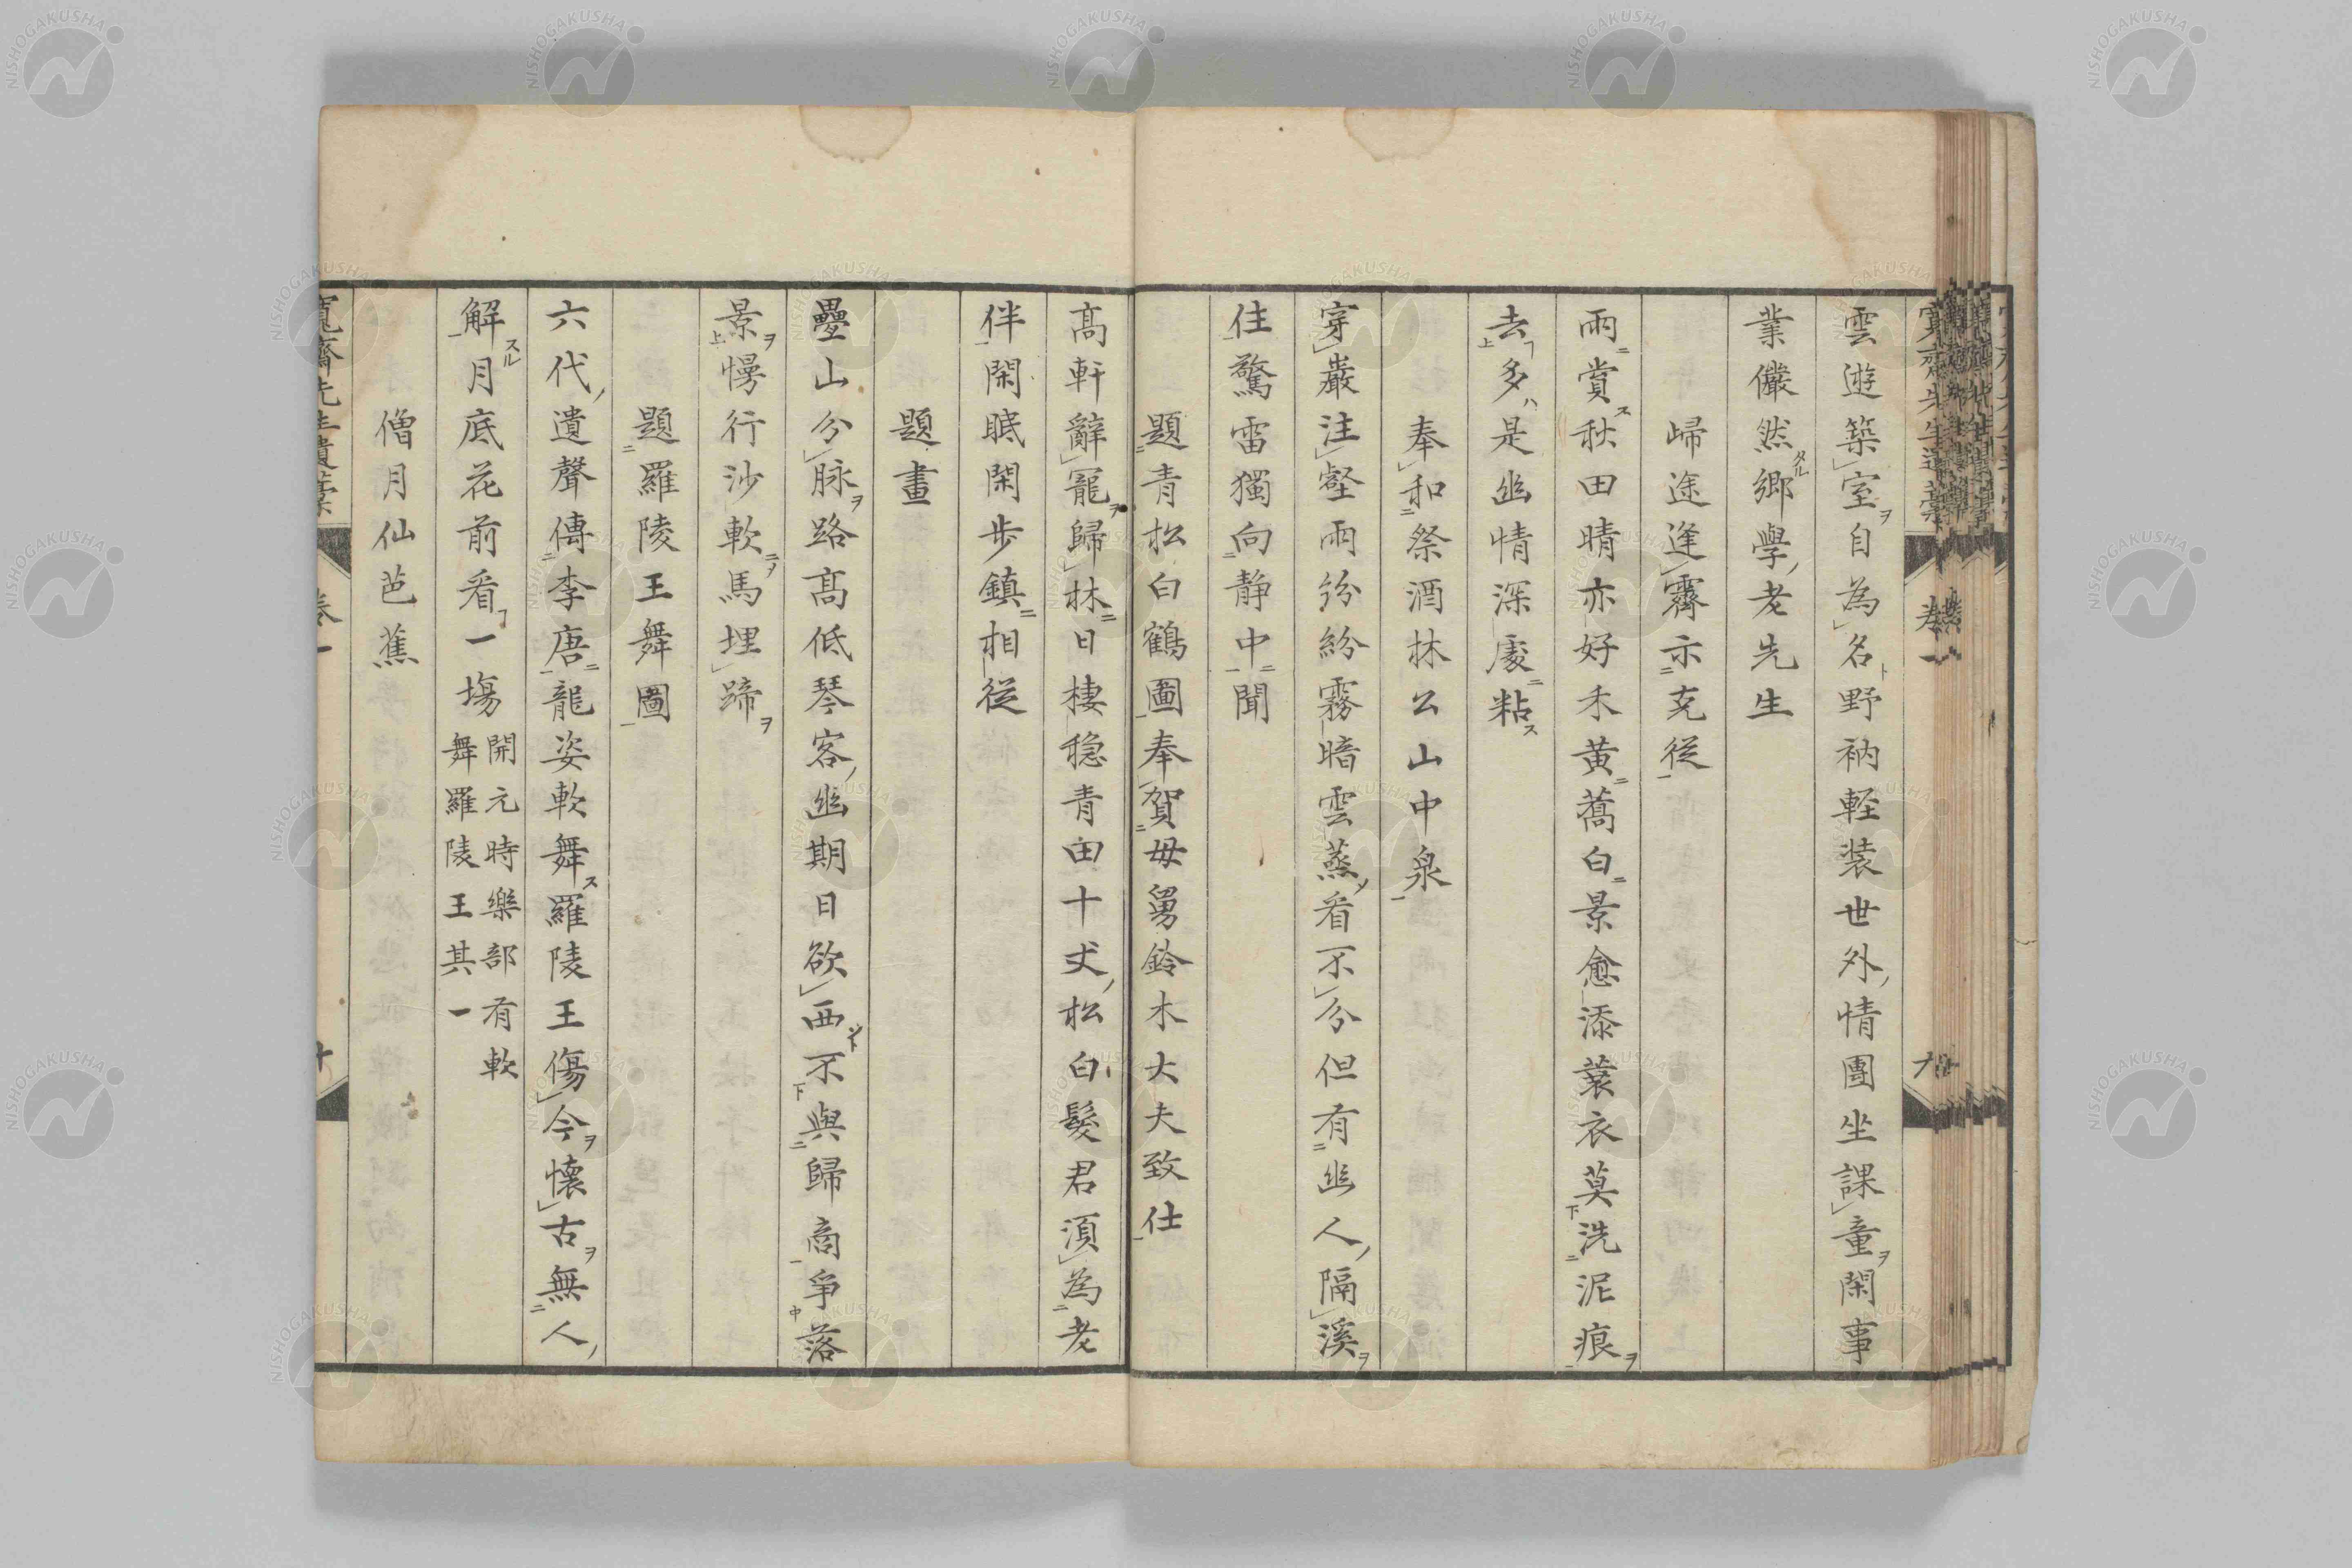 雲遊築室自為名野衲軽装世外情團坐課童閑事
業儼然郷學老先生
歸途逢霽示克從
雨賞秋田晴亦好禾黄蕎白景愈添蓑衣莫洗泥痕
去多是幽情深處粘
奉和祭酒林公山中泉
穿巌注壑雨紛紛霧暗雲蒸看不分但有幽人隔溪
住驚雷獨向静中聞
題青松白鶴圖奉賀毋舅鈴木大夫致仕
高軒辭寵歸林日棲穏青田十丈松白髮君須為老
伴閑眠閑歩鎮相從
題畫
疊山分脉路高低琴客幽期日欲西不與歸商爭落
景慢行沙軟馬埋蹄
題羅陵王舞圖
六代遺聲傳李唐龍姿軟舞羅陵王傷今懐古無人
解月底花前看一塲 開元時樂部有軟
舞羅陵王其一
僧月仙芭蕉
寛齋先生遺稾
巻一
十
NISHOGAKUSHA